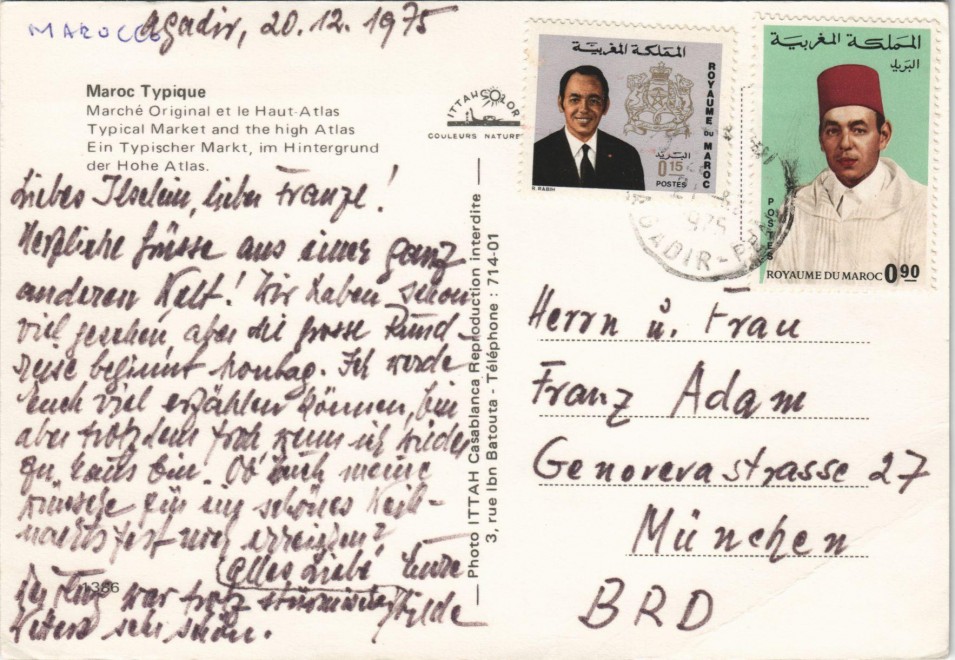 MAROCCO
Agadir, 20.12.1975
Maroc Typique
Marché Original et le Haut-Atlas
Typical Market and the high Atlas
Ein Typischer Markt, im Hintergrund
der Hohe Atlas.
Liebes Ilselein, lieber Franzl!
Herzliche Grüsse aus einer ganz
anderen Welt! Wir haben schon
viel gesehen, aber die grosse Rund-
reise beginnt Montag. Ich werde
Euch viel erzählen können, bin
aber trotzdem froh, wenn ich wieder
zu Haus bin. Ob Euch meine
Wünsche für ein schönes Weih-
nachtsfest noch erreichen?
Alles Liebe Eure
Hilde
Der Flug war trotz stürmischen
Wetters sehr schön.
1366
ITTAHCOLOR
COULEURS NATURE
Photo ITTAH Casablanca Reproduction interdite
3, rue Ibn Batouta - Téléphone : 714-01
المملكة المغربية
ROYAUME DU MAROC
البريد
0.15
POSTES
المملكة المغربية
البريد
POSTES
ROYAUME DU MAROC 0.90
AGADIR
Herrn u. Frau
Franz Adam
Genovevastrasse 27
München
BRD